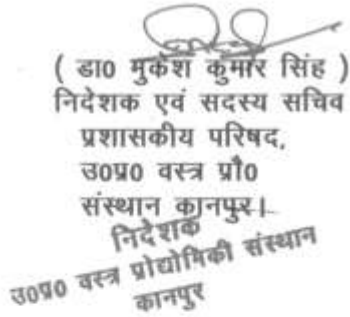 ( डा0 मुकेश कुमार सिंह )
निदेशक एवं सदस्य सचिव
प्रशासकीय परिषद,
उ0प्र0 वस्त्र प्रौ0
संस्थान कानपुर।
निदेशक
उ0प्र0 वस्त्र प्रोद्योगिकी संस्थान
कानपुर